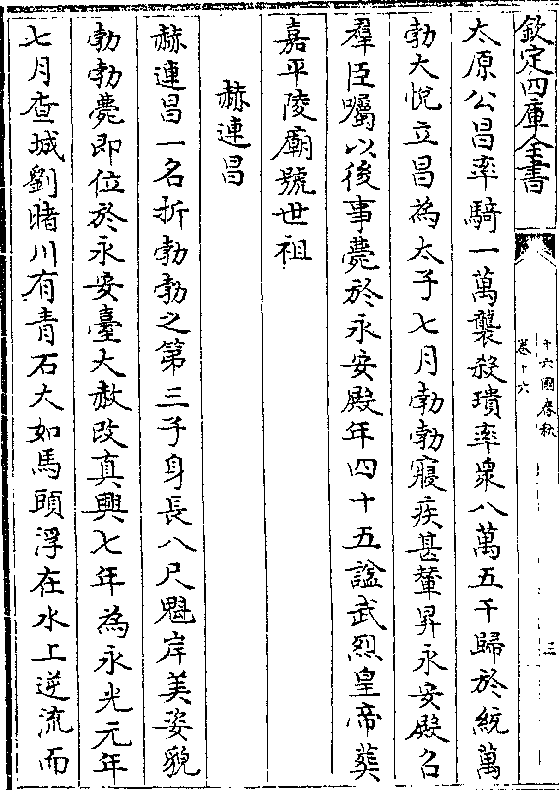 欽定四庫全書
十六國春秋
卷十六
三
太原公昌率騎一萬襲殺璝率衆八萬五千歸於統萬
勃大悅立昌為太子七月勃勃寢疾甚輦昇永安殿召
羣臣囑以後事薨於永安殿年四十五諡武烈皇帝葬
嘉平陵廟號世祖
赫連昌
赫連昌一名折勃勃之第三子身長八尺魁岸美姿貌
勃勃薨即位於永安臺大赦改真興七年為永光元年
七月查城劉睹川有青石大如馬頭浮在水上逆流而